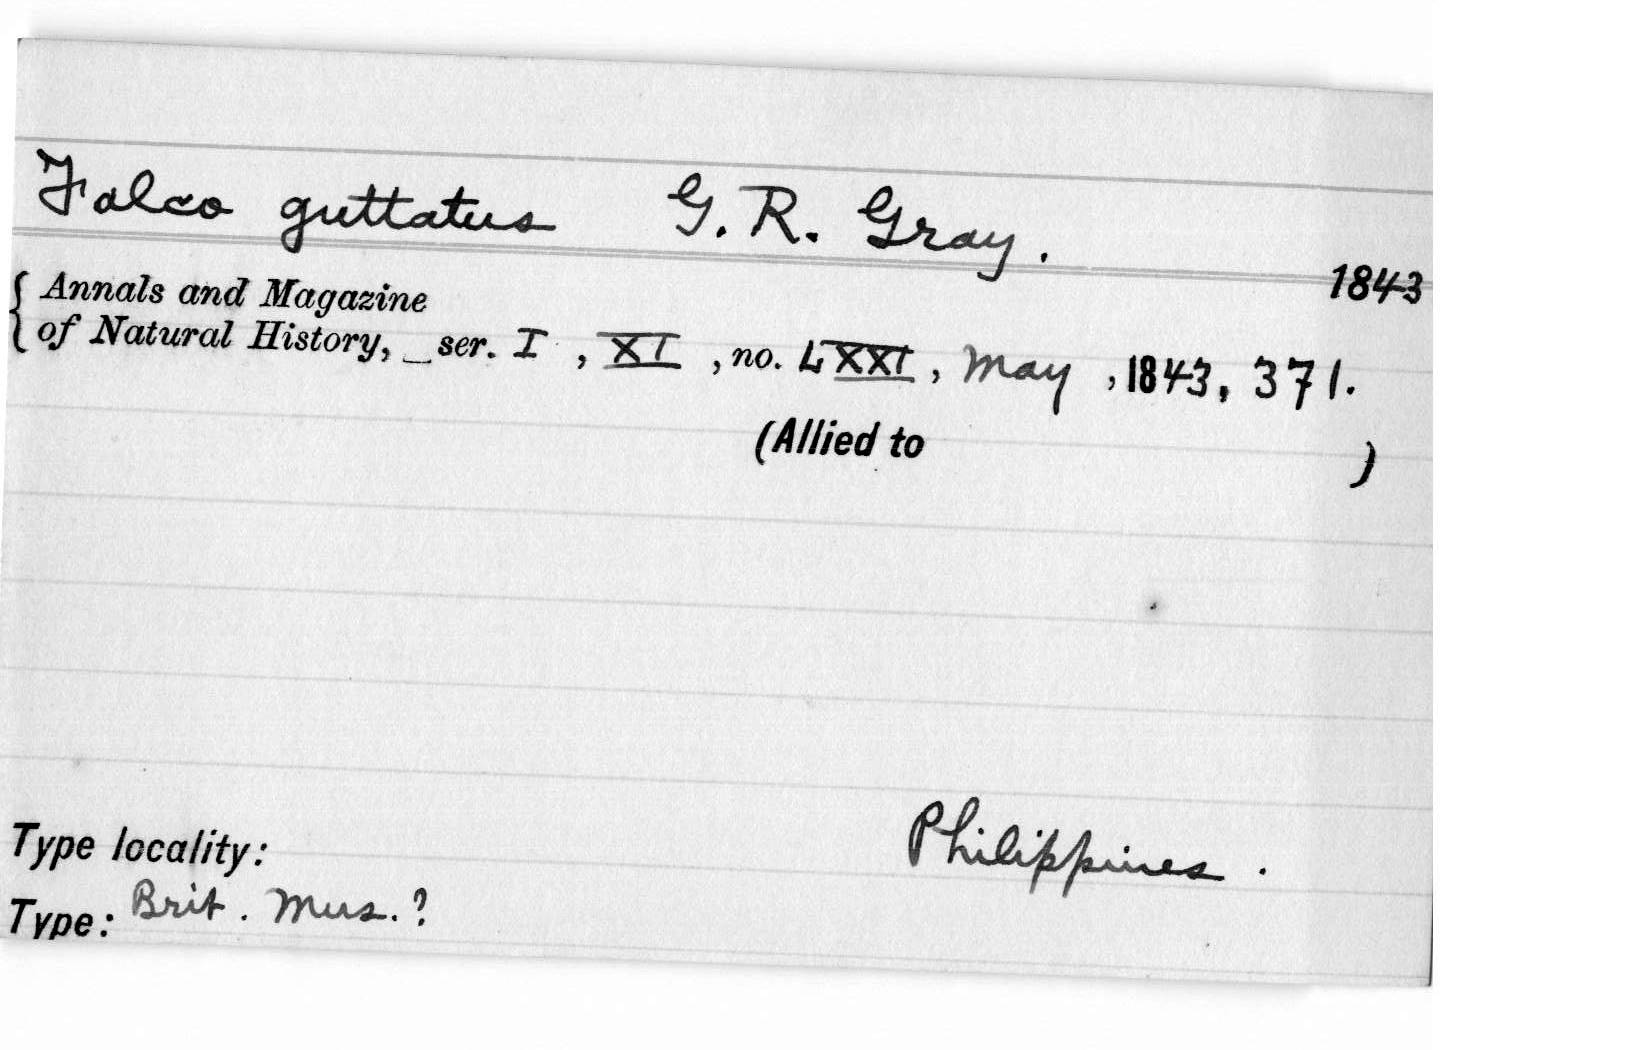 Falco guttatus G. R. Gray.
1843
{ Annals and Magazine
of Natural History, _ser. I , XI , no. LXXI, May , 1843, 371.
(Allied to )
Philippines .
Type locality:
Type: Brit. Mus. ?